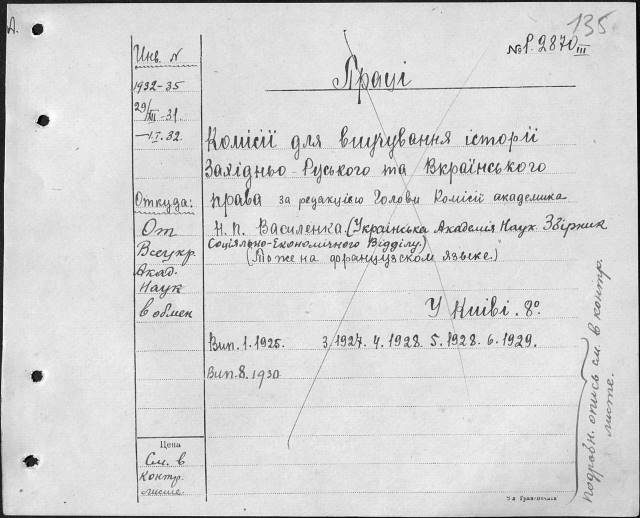 135
№ Р. 2870 III
Инв. №
1932-35
29/XII-31
-1.I.32.
Откуда:
От
Всеукр.
Акад.
Наук
в обмен
Цена
См. в
контр.
листе.
Праці
Комісії для виучування історії
Західньо-Руського та Вкраїнського
права за редакцією Голови Комісії академика
Н. П. Василенка. (Українська Академія Наук. Збірник
Соціяльно-Економічного Відділу.)
(То же на французском языке.)
У Київі. 8º.
Вип. 1. 1925. 3. 1927. 4. 1928. 5. 1928. 6. 1929.
Вип. 8. 1930
подробн. опись см. в контр.
листе.